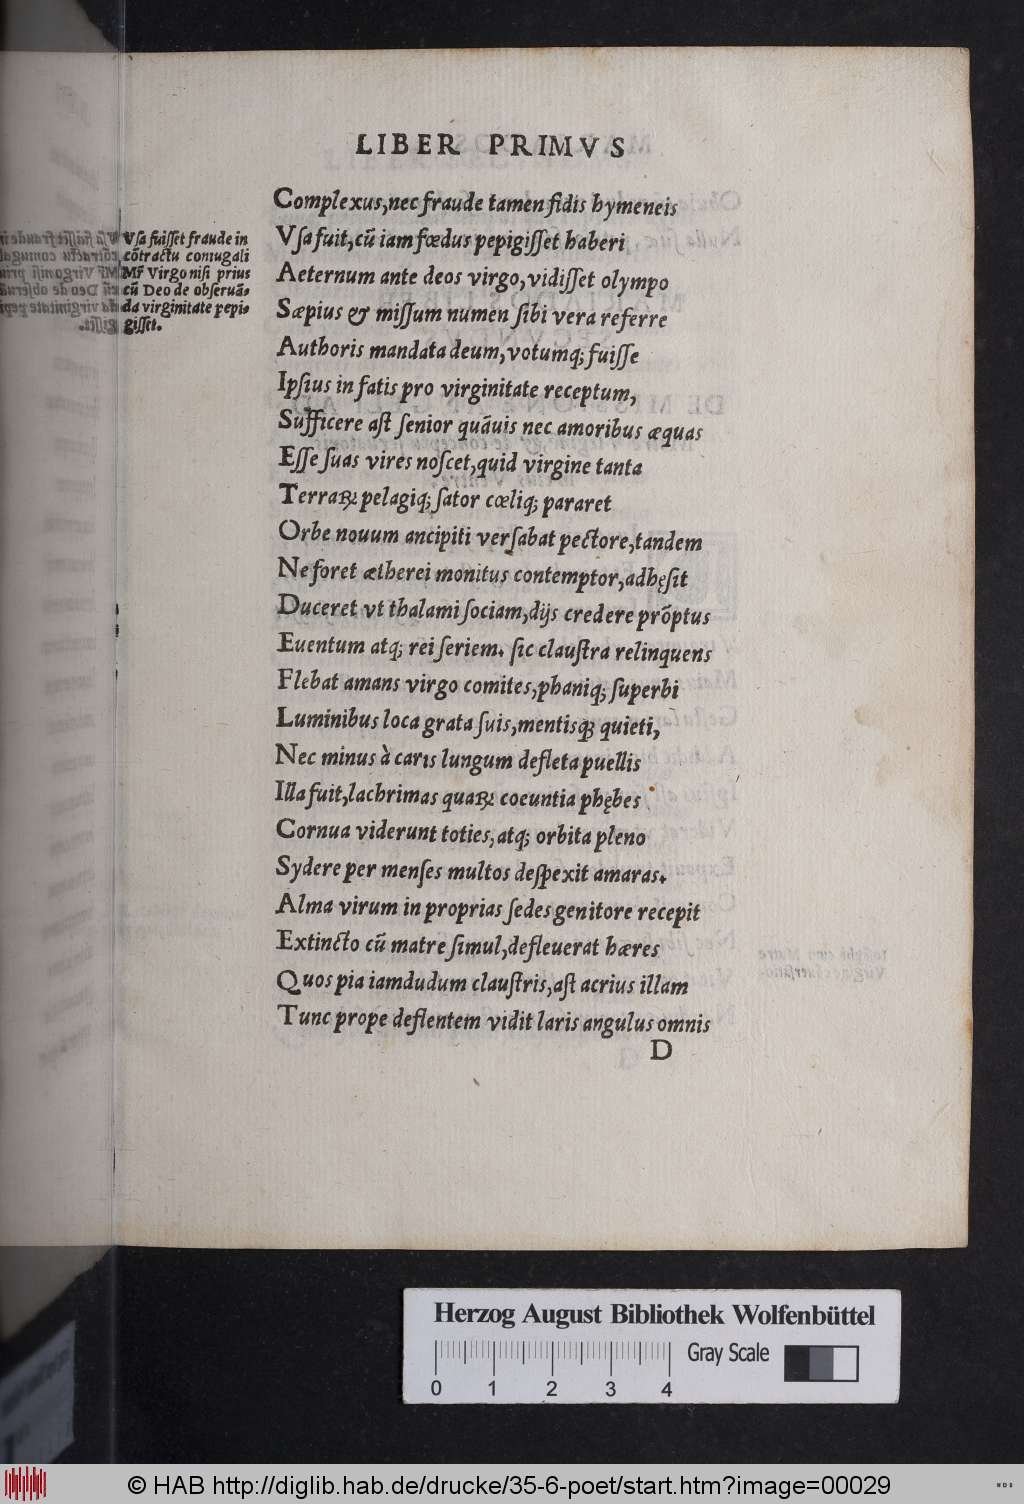 LIBER PRIMVS
Complexus,nec fraude tamen fidis hymeneis
Vsa fuit,cũ iam fœdus pepigiſſet haberi
Aeternum ante deos virgo,vidiſſet olympo
Sæpius & miſſum numen ſibi vera referre
Authoris mandata deum,votumq; fuiſſe
Ipſius in fatis pro virginitate receptum,
Sufficere aſt ſenior quãuis nec amoribus æquas
Eſſe ſuas vires noſcet,quid virgine tanta
Terraꝝ pelagiq; ſator cœliq; pararet
Orbe nouum ancipiti verſabat pectore,tandem
Ne foret ætherei monitus contemptor,adhęſit
Duceret vt thalami ſociam,dijs credere prõptus
Euentum atq; rei ſeriem. ſic clauſtra relinquens
Flebat amans virgo comites,phaniq; ſuperbi
Luminibus loca grata ſuis,mentisq; quieti,
Nec minus à caris lungum defleta puellis
Illa fuit,lachrimas quaꝝ coeuntia phębes
Cornua viderunt toties,atq; orbita pleno
Sydere per menſes multos deſpexit amaras.
Alma virum in proprias ſedes genitore recepit
Extincto cũ matre ſimul,defleuerat hæres
Quos pia iamdudum clauſtris,aſt acrius illam
Tunc prope deflentem vidit laris angulus omnis
D
Vſa fuiſſet fraude in
cõtractu coniugali
Virgo niſi prius
cũ Deo de obſeruã-
da virginitate pepi-
giſſet.
Herzog August Bibliothek Wolfenbüttel
Gray Scale
0 1 2 3 4
© HAB http://diglib.hab.de/drucke/35-6-poet/start.htm?image=00029